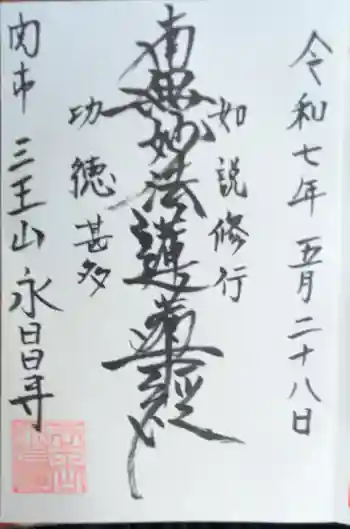 令和七年 五月二十八日
如説修行
南無妙法蓮華經
功徳甚多
関市 三王山 永昌寺